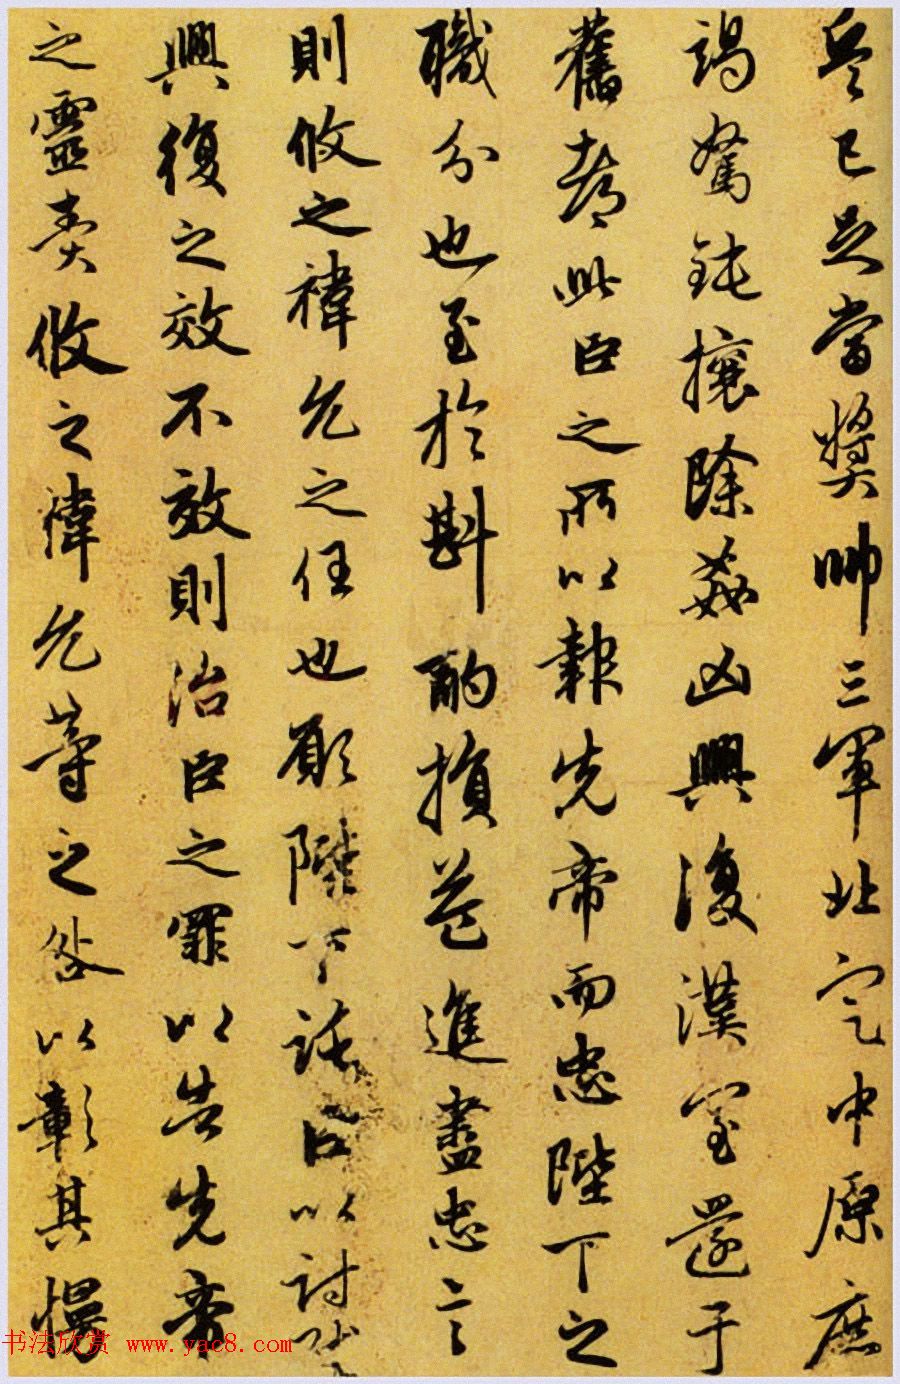 兵已足當獎帥三軍北定中原庶
竭駑鈍攘除姦凶興復漢室還于
舊都此臣之所以報先帝而忠陛下之
職分也至於斟酌損益進盡忠言
則攸之禕允之任也願陛下託臣以討
興復之效不效則治臣之罪以告先帝
之靈責攸之禕允等之咎以彰其慢
书法欣赏 www.yac8.com